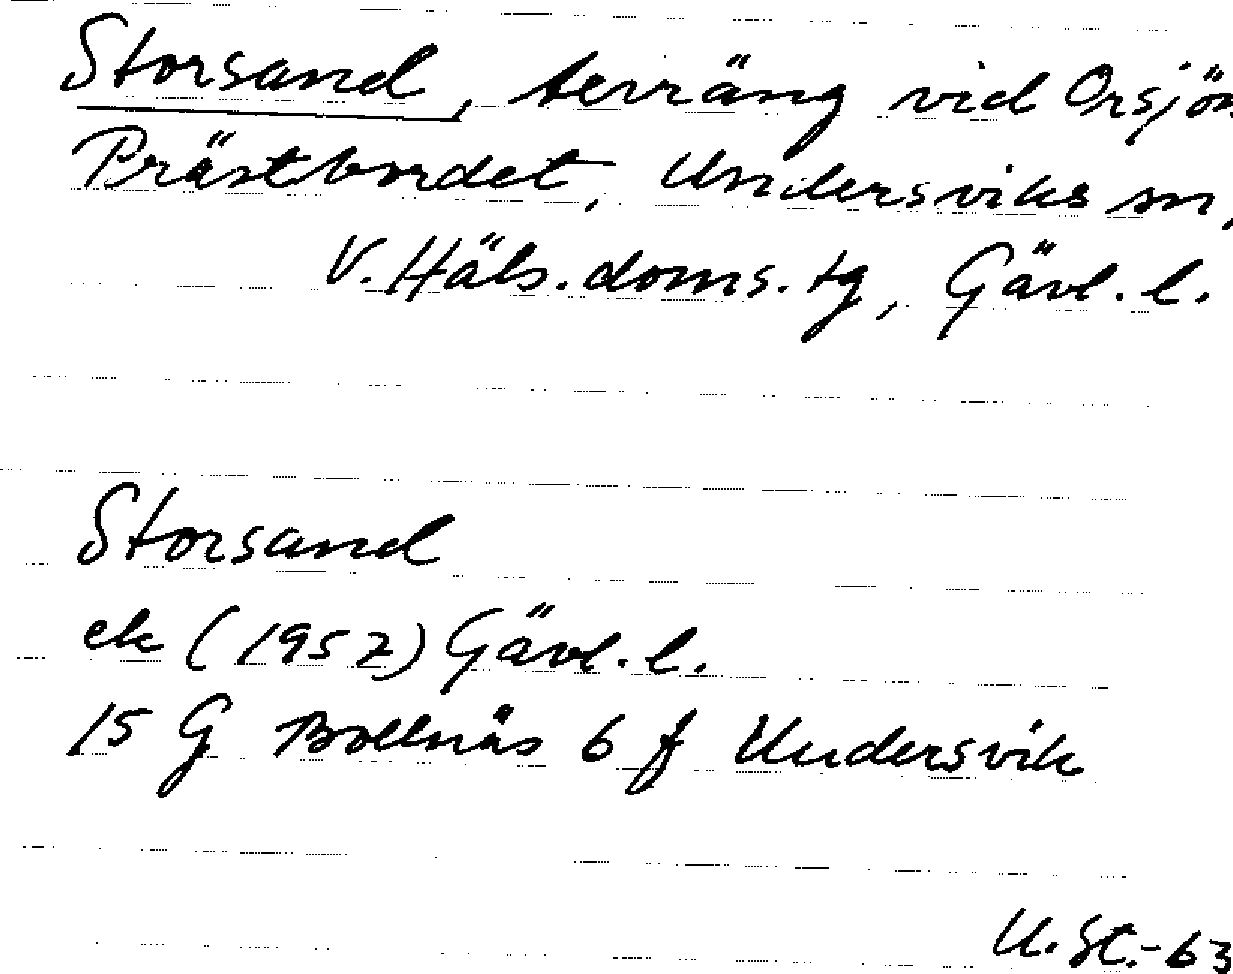 Storsand, terräng vid Orsjön
Prästbordet, Undersviks sn,
V. Häls. doms. tg, Gävl. l.
Storsand
ek (1952) Gävl. l.
15 G Bollnäs 6 f Undersvik
U. St.-63